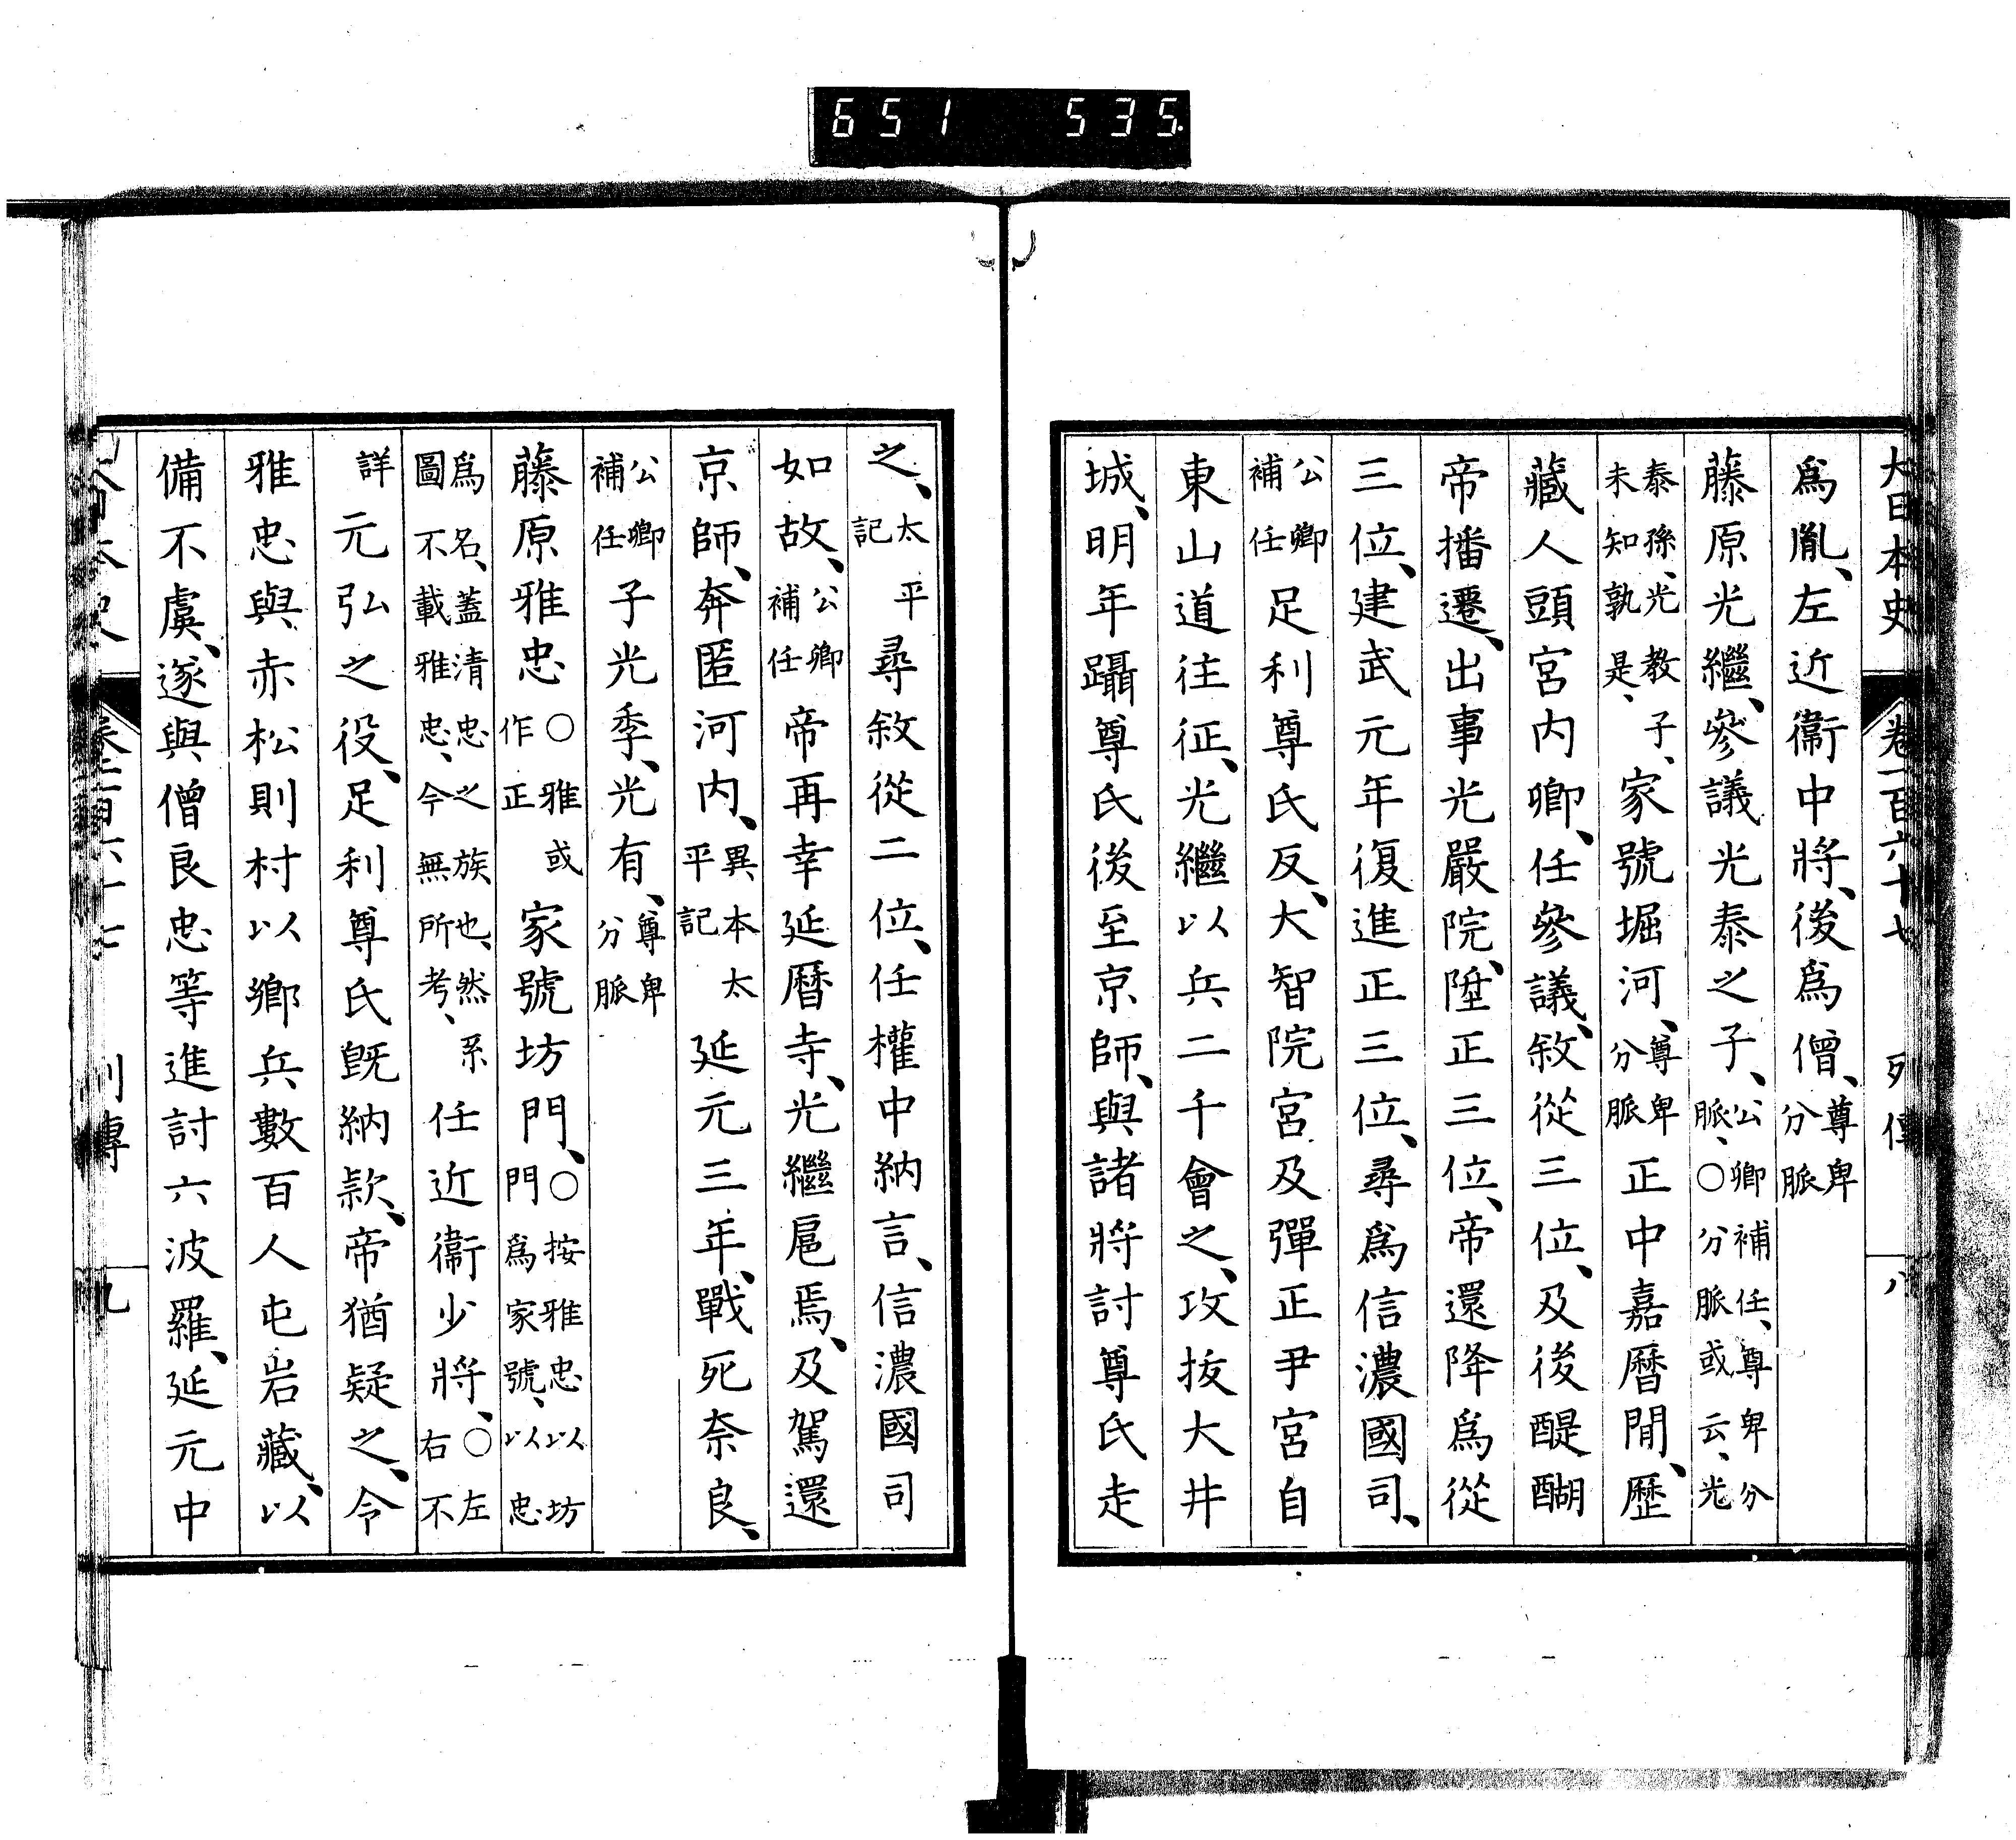 651 535.
大日本史 卷一百六十七 列傳 八
爲胤、左近衞中將、後爲僧、尊卑分脈
藤原光繼、參議光泰之子、公卿補任、尊卑分脈、○分脈或云、光
泰孫、光教子、未知孰是、家號堀河、尊卑分脈正中嘉曆閒、歷
藏人頭宮内卿、任參議、敘從三位、及後醍醐
帝播遷、出事光嚴院、陞正三位、帝還降爲從
三位、建武元年復進正三位、尋爲信濃國司、
公卿補任足利尊氏反、大智院宮及彈正尹宮自
東山道往征、光繼以兵二千會之、攻拔大井
城、明年躡尊氏後至京師、與諸將討尊氏走
之、太平記尋敘從二位、任權中納言、信濃國司
如故、公卿補任帝再幸延曆寺、光繼扈焉、及駕還
京師、奔匿河内、異本太平記延元三年、戰死奈良、
公卿補任子光季、光有、尊卑分脈
藤原雅忠○雅或作正家號坊門、○按雅忠以坊門爲家號、以忠
爲名、蓋清忠之族也、然系圖不載雅忠、今無所考、任近衞少將、○左右不
詳元弘之役、足利尊氏既納款、帝猶疑之、令
雅忠與赤松則村以鄉兵數百人屯岩藏、以
備不虞、遂與僧良忠等進討六波羅、延元中
大日本史 卷一百六十七 列傳 九